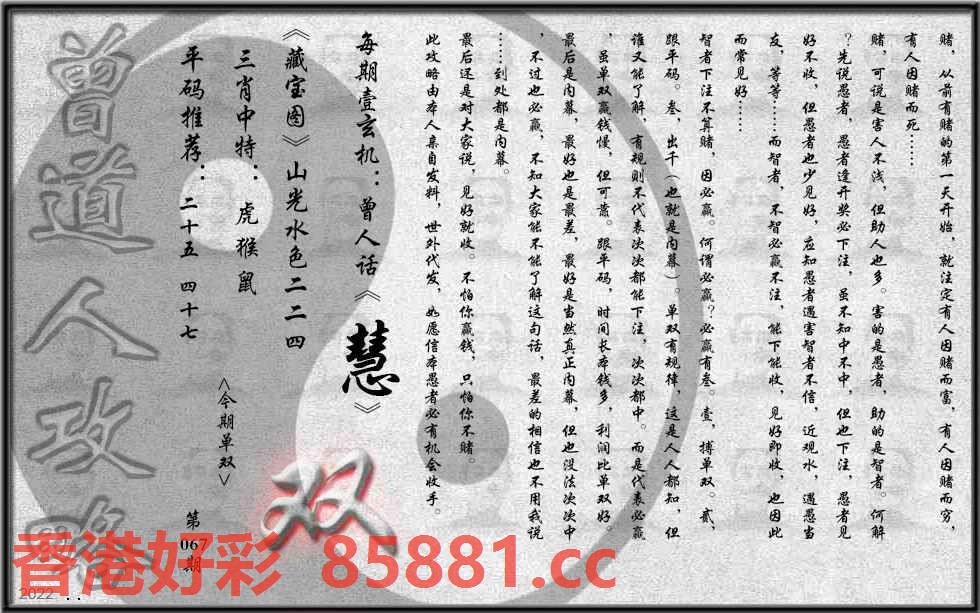 赌，从前有赌的第一天开始，就注定有人因赌而富，有人因赌而穷，
有人因赌而死……
赌，可说是害人不浅，但助人也多。害的是愚者，助的是智者。何解
？先说愚者，愚者逢开奖必下注，虽不知中不中，但也下注，愚者见
好不收，但愚者也少见好，应知愚者遇害智者不信，近观水，遇愚当
友，等等……而智者，不智必赢不注，能下能收，见好即收，也因此
而常见好……
智者下注不算赌，因必赢。何谓必赢？必赢有叁。壹，搏单双。贰，
跟平码。叁，出千（也就是内幕）。单双有规律，这是人人都知，但
谁又能了解，有规则不代表次次都能下注，次次都中。而是代表必赢
，虽单双赢钱慢，但可靠。跟平码，时间长本钱多，利润比单双好。
最后是内幕，最好也是最差，最好是当然真正内幕，但也没法次次中
，不过也必赢，不知大家能不能了解这句话，最差的相信也不用我说
……到处都是内幕。
最后还是对大家说，见好就收。不怕你赢钱，只怕你不赌。
此攻略由本人亲自发料，世外代发，如愿信本愚者必有机会收手。
每期壹玄机：曾人话《慧》
《藏宝图》山光水色二二四
三肖中特：虎猴鼠
平码推荐：二十五 四十七
<今期单双>
双
第067期
曾道人攻略
香港好彩 85881.cc
2022